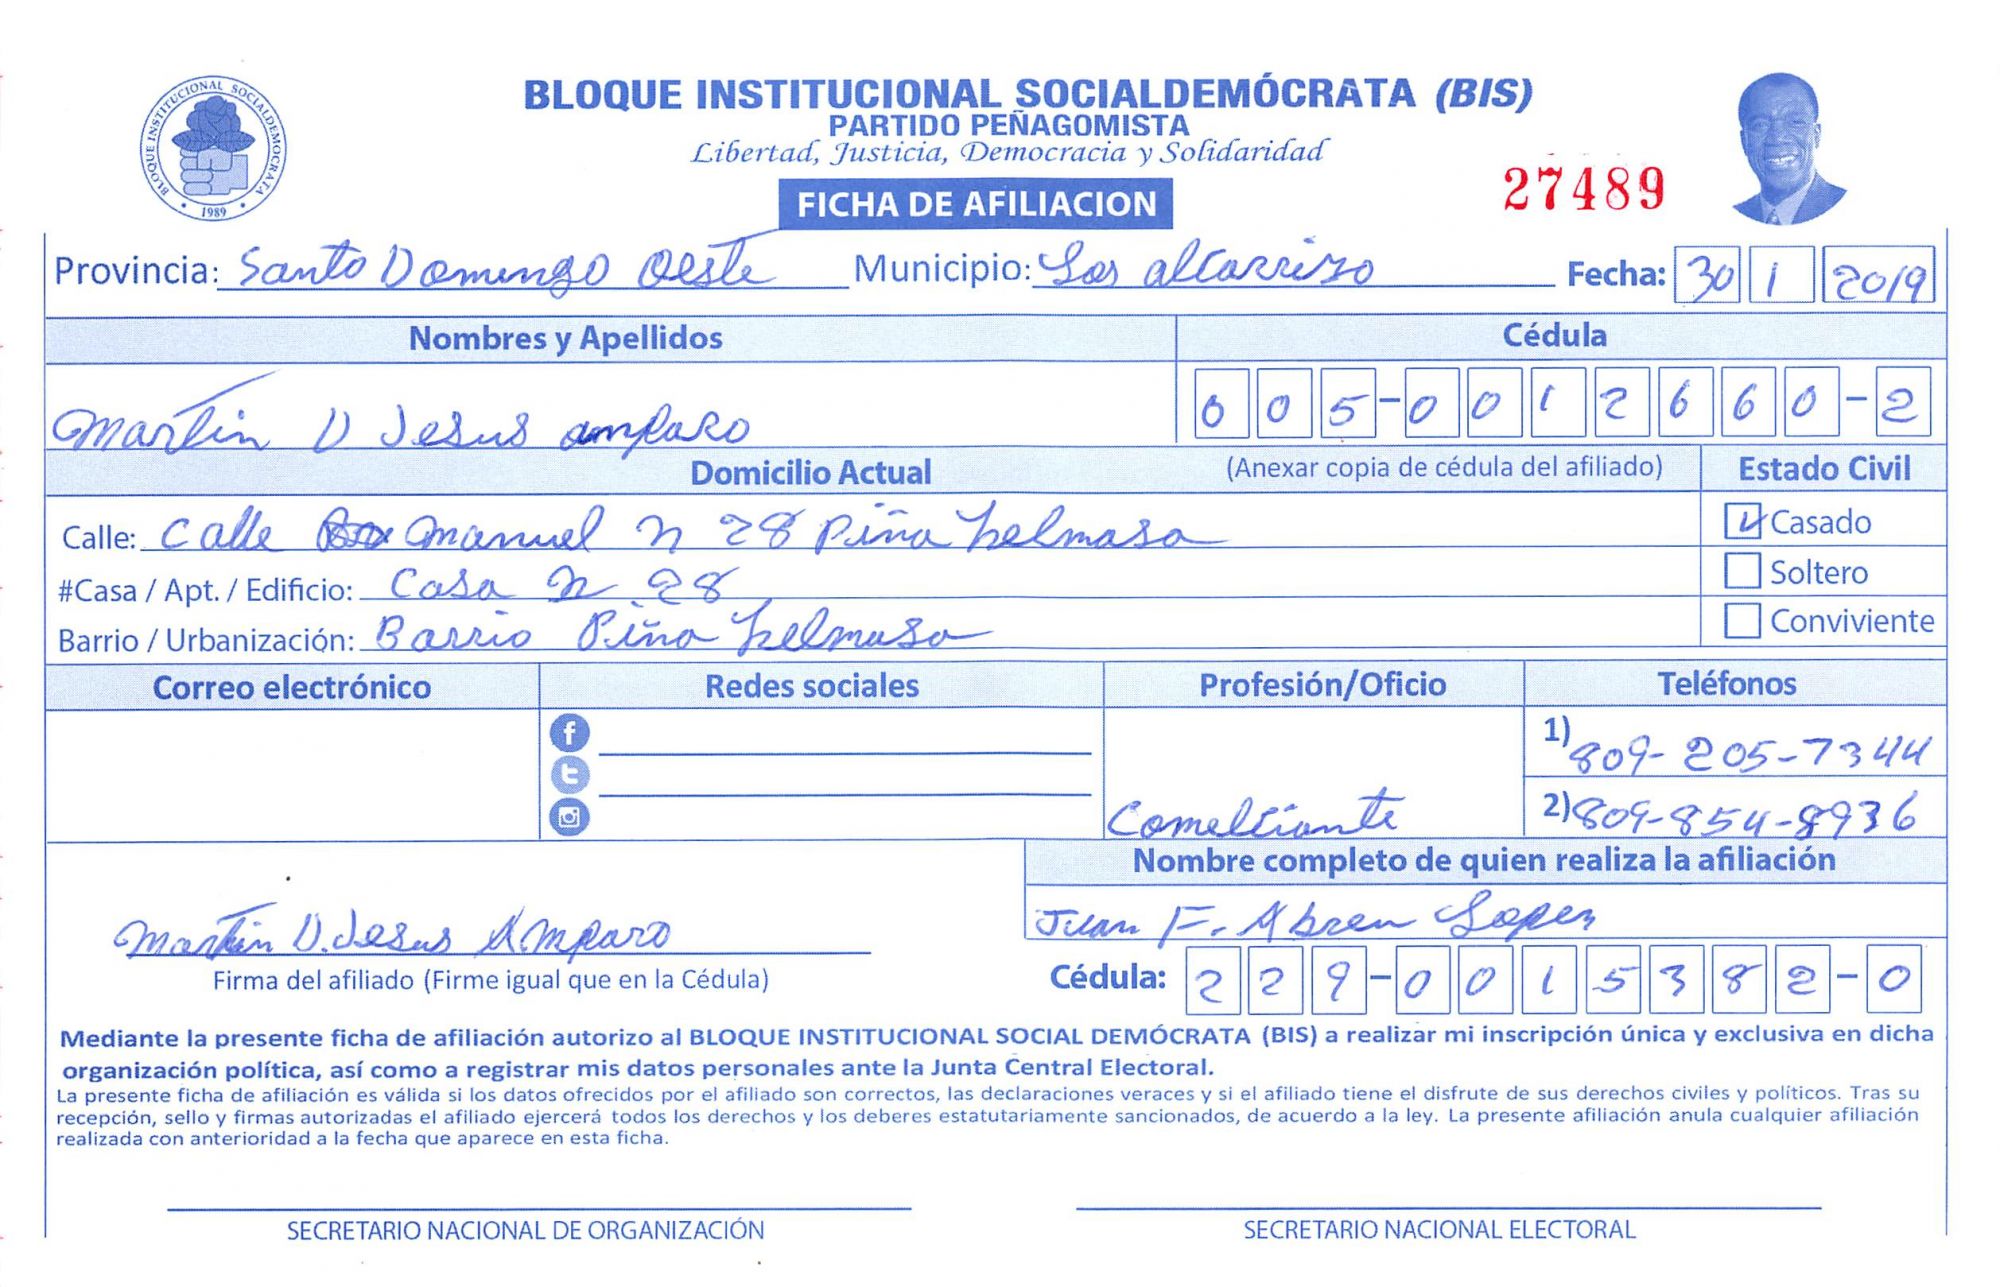 BLOQUE INSTITUCIONAL SOCIALDEMOCRATA
1989
BLOQUE INSTITUCIONAL SOCIALDEMÓCRATA (BIS)
PARTIDO PEÑAGOMISTA
Libertad, Justicia, Democracia y Solidaridad
FICHA DE AFILIACION
27489
Provincia: Santo Domingo Oeste Municipio: Los alcarrizo Fecha: 30 1 2019
Nombres y Apellidos Cédula
Martin D Jesus amparo 005-0012660-2
Domicilio Actual (Anexar copia de cédula del afiliado) Estado Civil
Calle: Calle Manuel n 28 Piña Casado
#Casa / Apt. / Edificio: Casa n 28 Soltero
Barrio / Urbanización: Barrio Piña Conviviente
Correo electrónico Redes sociales Profesión/Oficio Teléfonos
1) 809-205-7344
Comelciante 2) 809-854-8936
Nombre completo de quien realiza la afiliación
Juan F. Abreu Lopez
Martin D. Jesus Amparo
Firma del afiliado (Firme igual que en la Cédula) Cédula: 229-0015382-0
Mediante la presente ficha de afiliación autorizo al BLOQUE INSTITUCIONAL SOCIAL DEMÓCRATA (BIS) a realizar mi inscripción única y exclusiva en dicha
organización política, así como a registrar mis datos personales ante la Junta Central Electoral.
La presente ficha de afiliación es válida si los datos ofrecidos por el afiliado son correctos, las declaraciones veraces y si el afiliado tiene el disfrute de sus derechos civiles y políticos. Tras su
recepción, sello y firmas autorizadas el afiliado ejercerá todos los derechos y los deberes estatutariamente sancionados, de acuerdo a la ley. La presente afiliación anula cualquier afiliación
realizada con anterioridad a la fecha que aparece en esta ficha.
SECRETARIO NACIONAL DE ORGANIZACIÓN SECRETARIO NACIONAL ELECTORAL